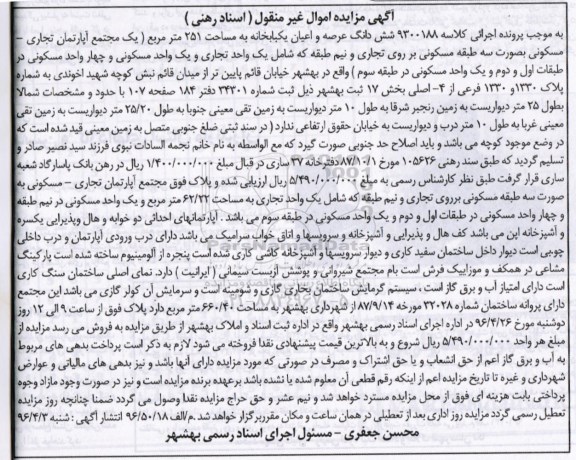 آگهی مزایده اموال غیر منقول ( اسناد رهنی )
به موجب پرونده اجرائی کلاسه ۹۳۰۰۱۸۸ شش دانگ عرصه و اعیان یکبابخانه به مساحت ۲۵۱ متر مربع ( یک مجتمع آپارتمان تجاری –
مسکونی بصورت سه طبقه مسکونی بر روی تجاری و نیم طبقه که شامل یک واحد تجاری و یک واحد مسکونی و چهار واحد مسکونی در
طبقات اول و دوم و یک واحد مسکونی در طبقه سوم ) واقع در بهشهر خیابان قائم پایین تر از میدان قائم نبش کوچه شهید اخوندی به شماره
پلاک ۱۳۳۰و ۱۳۳۰ فرعی از ۴- اصلی بخش ۱۷ ثبت بهشهر ذیل ثبت شماره ۳۴۳۰۱ دفتر ۱۸۴ صفحه ۱۰۷ با حدود و مشخصات شمالا
بطول ۲۵ متر دیواریست به زمین رنجبر شرقا به طول ۱۰ متر دیواریست به زمین تقی معینی جنوبا به طول ۲۵/۲۰ متر دیواریست به زمین تقی
معینی غربا به طول ۱۰ متر درب و دیواریست به خیابان حقوق ارتفاعی ندارد ( در سند ثبتی ضلع جنوبی متصل به زمین معینی قید شده است که
در وضع موجود کوچه می باشد و باید اصلاح حد جنوبی صورت گیرد که مع الواسطه به نام خانم نجمه السادات نبوی فرزند سید نصیر صادر و
تسلیم گردید که طبق سند رهنی ۱۰۵۶۲۶ مورخ ۸۷/۱۰/۱ دفترخانه ۳۷ ساری در قبال مبلغ ۱/۴۰۰/۰۰۰/۰۰۰ ریال در رهن بانک پاسارگاد شعبه
ساری قرار گرفت طبق نظر کارشناس رسمی به مبلغ ۵/۴۹۰/۰۰۰/۰۰۰ ریال ارزیابی شده و پلاک فوق مجتمع آپارتمان تجاری – مسکونی به
صورت سه طبقه مسکونی برروی تجاری و نیم طبقه که شامل یک واحد تجاری به مساحت ۶۲/۲۲ متر مربع و یک واحد مسکونی در نیم طبقه
و چهار واحد مسکونی در طبقات اول و دوم و یک واحد مسکونی در طبقه سوم می باشد . آپارتمانهای احداثی دو خوابه و هال وپذیرایی یکسره
و آشپزخانه اپن می باشد کف هال و پذیرایی و آشپزخانه و سرویسها و اتاق خواب سرامیک می باشد دارای درب ورودی آپارتمان و درب داخلی
چوبی است دیوار داخل ساختمان سفید کاری و دیوار سرویسها و آشپزخانه کاشی کاری شده است پنجره از آلومینیوم ساخته شده است پارکینگ
مشاعی در همکف و موزاییک فرش است بام مجتمع شیروانی و پوشش آزبست سیمانی ( ایرانیت ) دارد. نمای اصلی ساختمان سنگ کاری
است دارای امتیاز آب و برق گاز است ، سیستم گرمایش ساختمان بخاری گازی و شومینه است و سرمایش آن کولر گازی می باشد این مجتمع
دارای پروانه ساختمان شماره ۳۲۰۲۸ مورخه ۸۷/۹/۱۴ از شهرداری بهشهر به مساحت ۶۶۰/۴۰ متر مربع دارد پلاک فوق از ساعت ۹ الی ۱۲ روز
دوشنبه مورخ ۹۶/۴/۲۶ در اداره اجرای اسناد رسمی بهشهر واقع در اداره ثبت اسناد و املاک بهشهر از طریق مزایده به فروش می رسد مزایده از
مبلغ هر واحد ۵/۴۹۰/۰۰۰/۰۰۰ ریال شروع و به بالاترین قیمت پیشنهادی نقدا فروخته می شود لازم به ذکر است پرداخت بدهی های مربوط
به آب و برق گاز اعم از حق انشعاب و یا حق اشتراک و مصرف در صورتی که مورد مزایده دارای آنها باشد و نیز بدهی های مالیاتی و عوارض
شهرداری و غیره تا تاریخ مزایده اعم از اینکه رقم قطعی آن معلوم شده یا نشده باشد برعهده برنده مزایده است و نیز در صورت وجود مازاد وجوه
پرداختی بابت هزینه ای فوق از محل مزایده مسترد خواهد شد و نیم عشر و حق حراج مزایده نقدا وصول می گردد ضمنا چنانچه روز مزایده
تعطیل رسمی گردد مزایده روز اداری بعد از تعطیلی در همان ساعت و مکان مقرر برگزار خواهد شد .م/الف ۹۶/۵۰/۱۸ انتشار آگهی : شنبه ۹۶/۴/۳
محسن جعفری – مسئول اجرای اسناد رسمی بهشهر